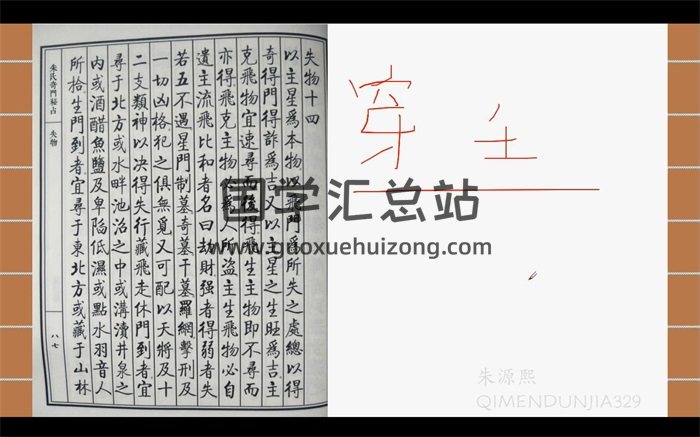 失物十四
以主星爲本物以飛門爲所失之處總以得
奇得門得詐爲吉又以主星之生旺爲吉主
克飛物宜速尋而後得飛生主物即不尋而
亦得飛克主物於爲人所盜主生飛物必自
遺主流飛比和者名曰劫財强者得弱者失
若五不遇星門制墓奇墓干墓羅網擊刑及
一切凶格犯之俱無覓又可配以天將及十
二支類神以决得失行藏飛走休門到者宜
尋于北方或水畔池沼之中或溝瀆井泉之
内或酒醋魚鹽及卑陷低濕或點水羽音人
所拾生門到者宜尋于東北方或藏于山林
朱氏奇門秘占
失物
八七
穿 土
国学汇总站
www.guoxuehuizong.com
朱源熙
QIMENDUNJIA329